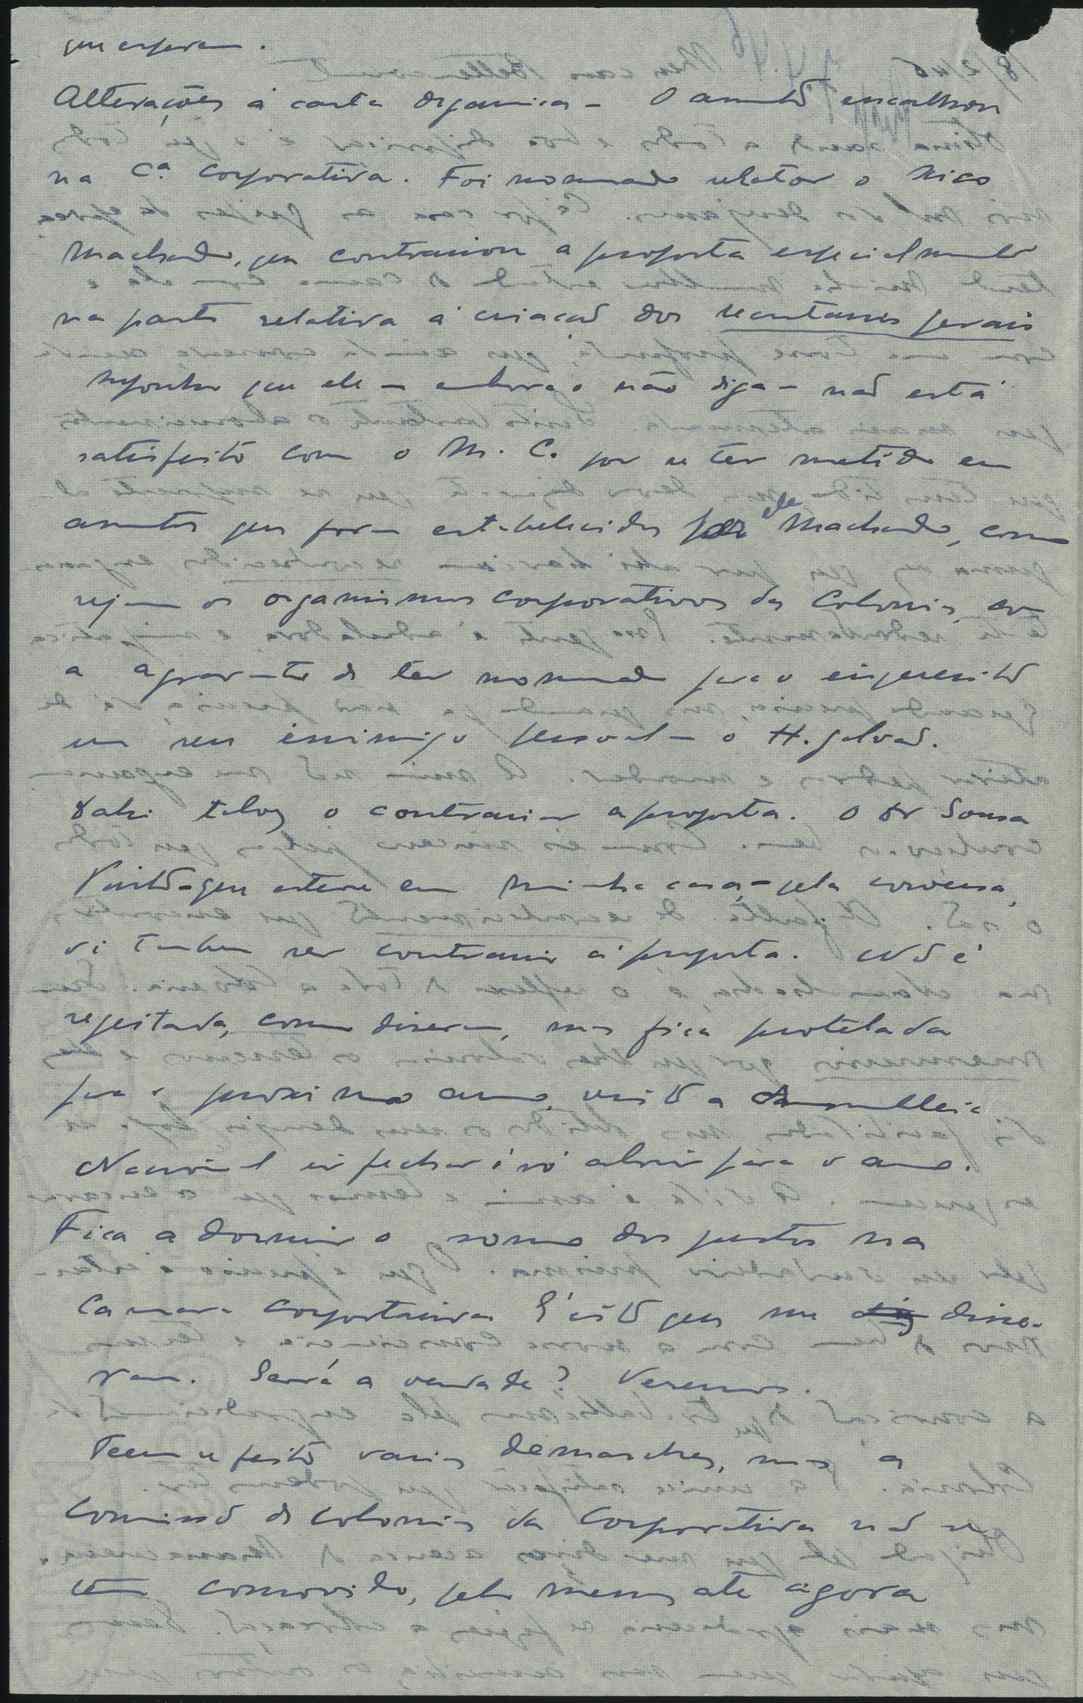 que esperam.
Alterações á carta organica – O assunto encalhou
na Cª Corporativa. Foi nomeado relator o Vico
Machado, que contrariou a proposta especialmente
na parte relativa á criação dos secretarios gerais
suponho que ele – embora o não diga – não está
satisfeito com o M. C. por se ter metido em
assuntos que foram estabelecidos por ele Machado, como
sejam os organismos corporativos das Colonias, com
a agravante de ter nomeado para o inquerito
um seu inimigo pessoal – o H. Galvão.
Dahi talvez o contrariar a proposta. O Dr Sousa
Pinto – que esteve em minha casa – pela conversa,
vi tambem ser contrario á proposta. Não é
rejeitada, como disseram, mas fica protelada
para o proximo ano, visto a Assembleia
Nacional ir fechar e só abrir para o ano.
Fica a dormir o sono dos justos na
Camara Corporativa. E' isto que me disse-
ram. Será a verdade? Veremos.
Teem se feito varias demarches, mas a
Comissão de colonias da Corporativa não se
tem comovido, pelo menos até agora